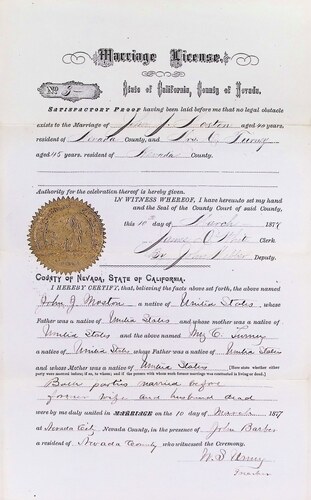 Marriage License.
No 9
State of California, County of Nevada.
SATISFACTORY PROOF having been laid before me that no legal obstacle
exists to the Marriage of John J. Moston aged 40 years,
resident of Nevada County, and Mrs. C. Turney
aged 45 years, resident of Nevada County.
Authority for the celebration thereof is hereby given.
IN WITNESS WHEREOF, I have hereunto set my hand
and the Seal of the County Court of said County,
this 10th day of March 1877
Clerk.
By John Deputy.
COUNTY OF NEVADA, STATE OF CALIFORNIA.
I HEREBY CERTIFY, that, believing the facts above set forth, the above named
John J. Moston a native of United States, whose
Father was a native of United States and whose mother was a native of
United States and the above named C. Turney
a native of United States whose Father was a native of United States
and whose Mother was a native of United States [Here state whether either
party were married before; if so, to whom; and if the person with whom such former marriage was contracted is living or dead.]
Both parties married before
former wife and husband dead
were by me duly united in MARRIAGE on the 10 day of March 1877
at Nevada City, Nevada County, in the presence of John Barber
a resident of Nevada County who witnessed the Ceremony.
W. S. Urmy